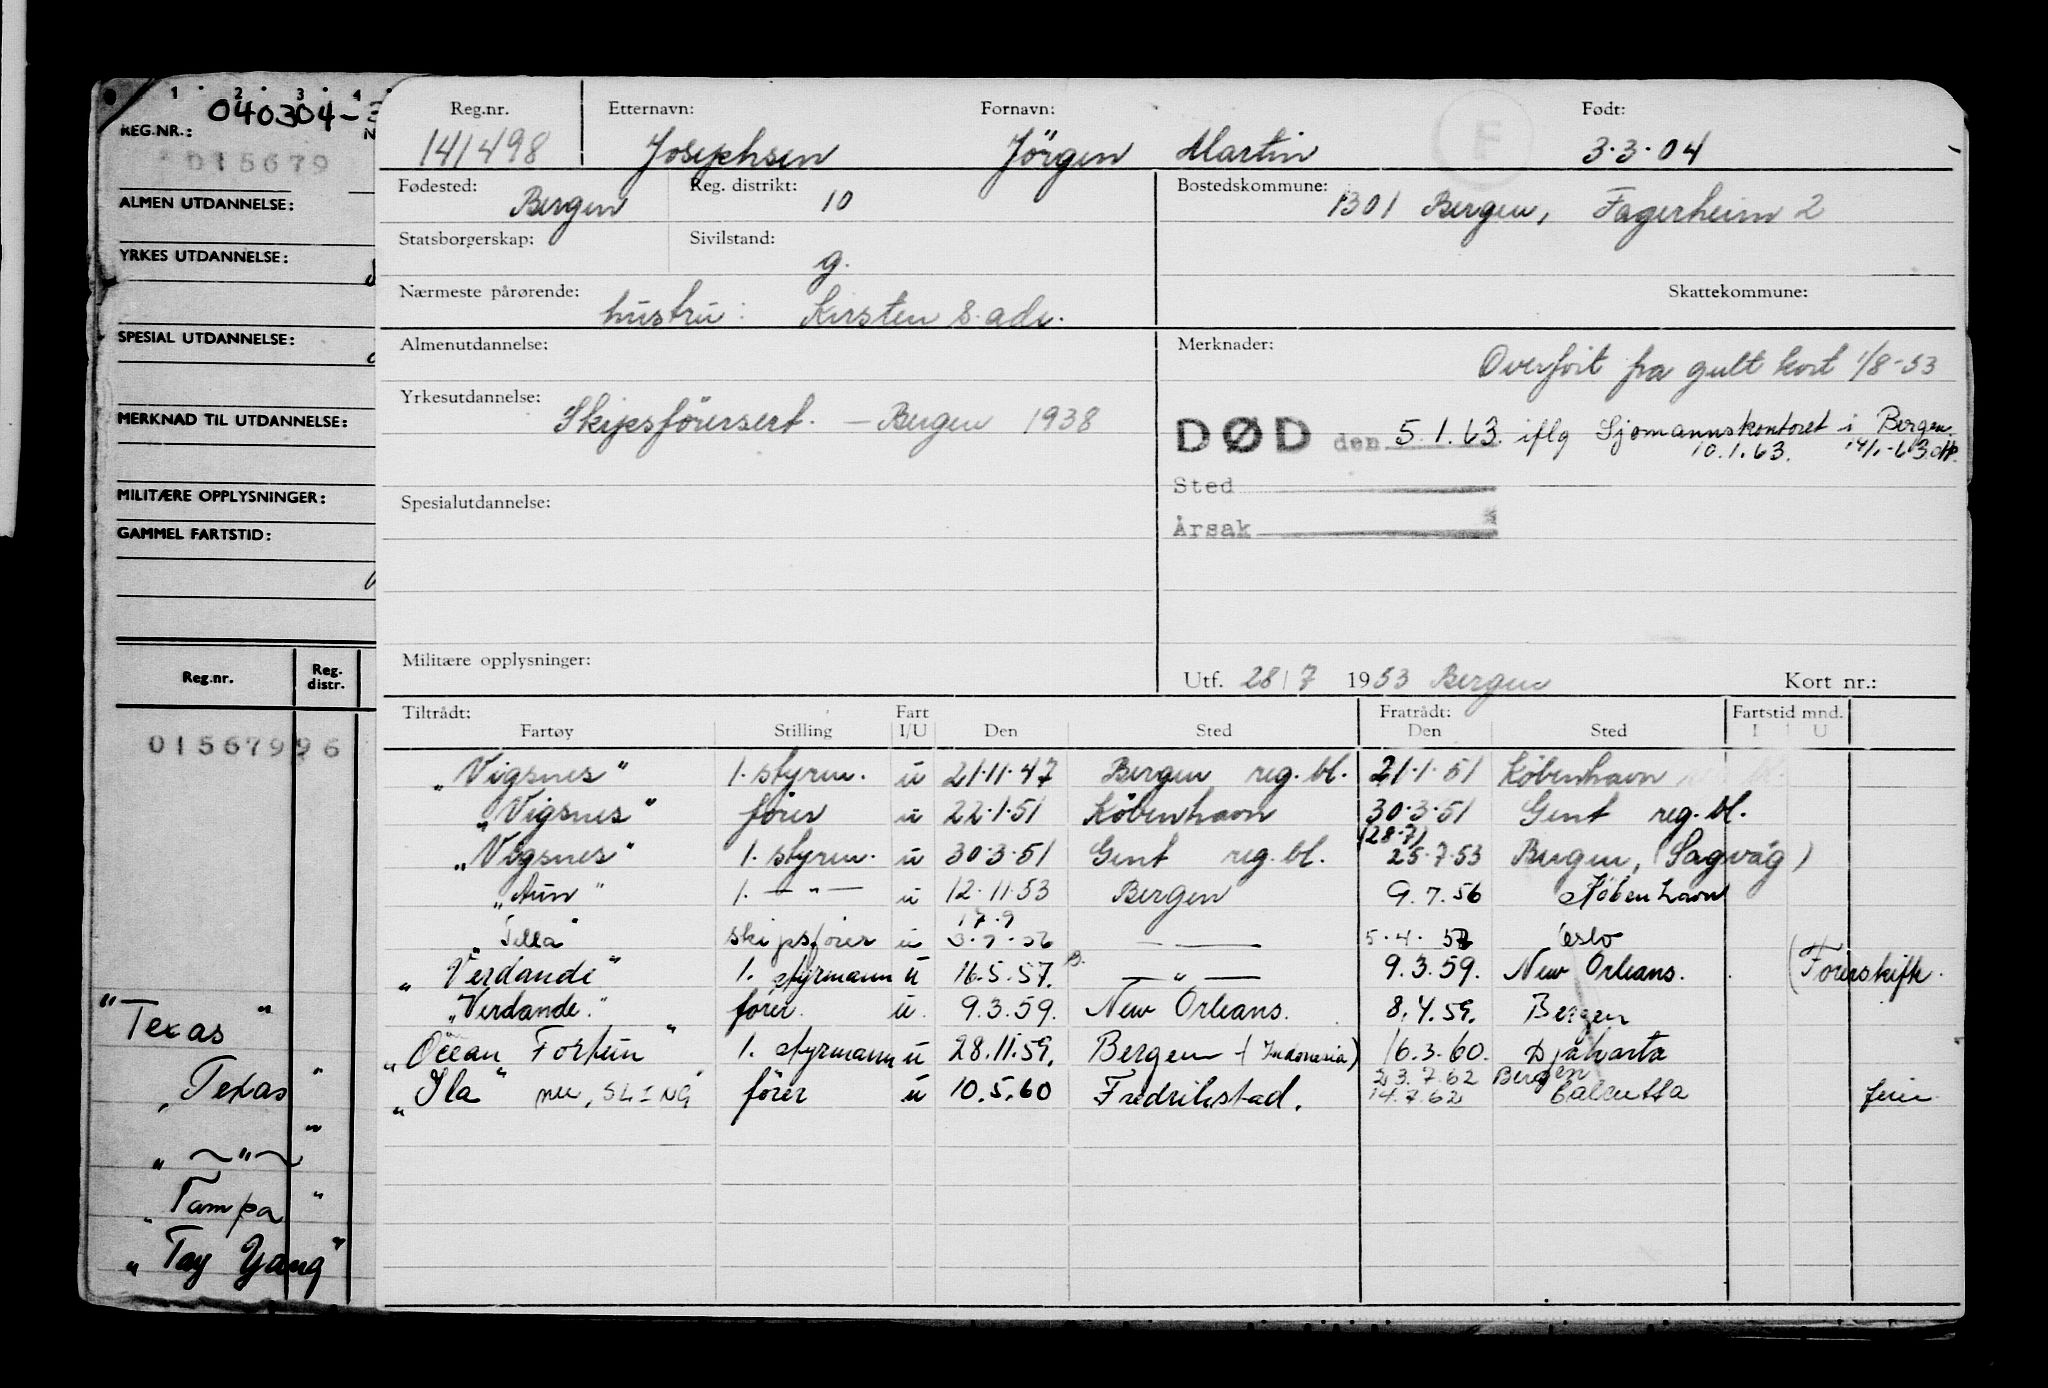 1 2 3 4
040304-3
REG.NR.:
015679
ALMEN UTDANNELSE:
YRKES UTDANNELSE:
SPESIAL UTDANNELSE:
MERKNAD TIL UTDANNELSE:
MILITÆRE OPPLYSNINGER:
GAMMEL FARTSTID:
Reg.nr. Reg. distr.
01567996
"Texas"
"Texas"
" — " — "
"Tampa"
"Tay Yang"
Reg.nr. Etternavn: Fornavn: Født:
141498 Josephsen Jörgen Martin F 3.3.04
Fødested: Reg. distrikt: Bostedskommune:
Bergen 10 1301 Bergen, Fagerheim 2
Statsborgerskap: Sivilstand:
g.
Nærmeste pårørende: Skattekommune:
hustru: Kirsten s. adr.
Almenutdannelse: Merknader:
Overfört fra gult kort 1/8-53
Yrkesutdannelse:
Skipsförersert. — Bergen 1938
DØD den 5.1.63. iflg Sjømannskontoret i Bergen
10.1.63.
Sted
Spesialutdannelse:
Årsak
Militære opplysninger:
Utf. 28/7 1953 Bergen Kort nr.:
Tiltrådt: Fart Fratrådt: Fartstid mnd.
Fartøy Stilling I/U Den Sted Den Sted I U
"Vigsnes" 1. styrm. u 21.11.47 Bergen reg. bl. 21.1.51 Köbenhavn
"Vigsnes" förer u 22.1.51 Köbenhavn 30.3.51 Gent reg. bl.
(28.7)
"Vigsnes" 1. styrm. u 30.3.51 Gent reg. bl. 25.7.53 Bergen, (Sagvåg)
"Aun" 1. — " — u 12.11.53 Bergen 9.7.56 Köbenhavn
17.9
skipsförer u — — 5.4.57 Oslo
"Verdande" 1. styrmann u 16.5.57. — " — 9.3.59. New Orleans. (Förerskift.
"Verdande." förer. u. 9.3.59. New Orleans. 8.4.59. Bergen
"Ocean Fortun" 1. styrmann u 28.11.59. Bergen - (Indonesia) 16.3.60. Djakarta
23.7.62 Bergen
"Ila" nu, SLING förer u 10.5.60 Fredrikstad. 14.7.62 Calcutta ferie